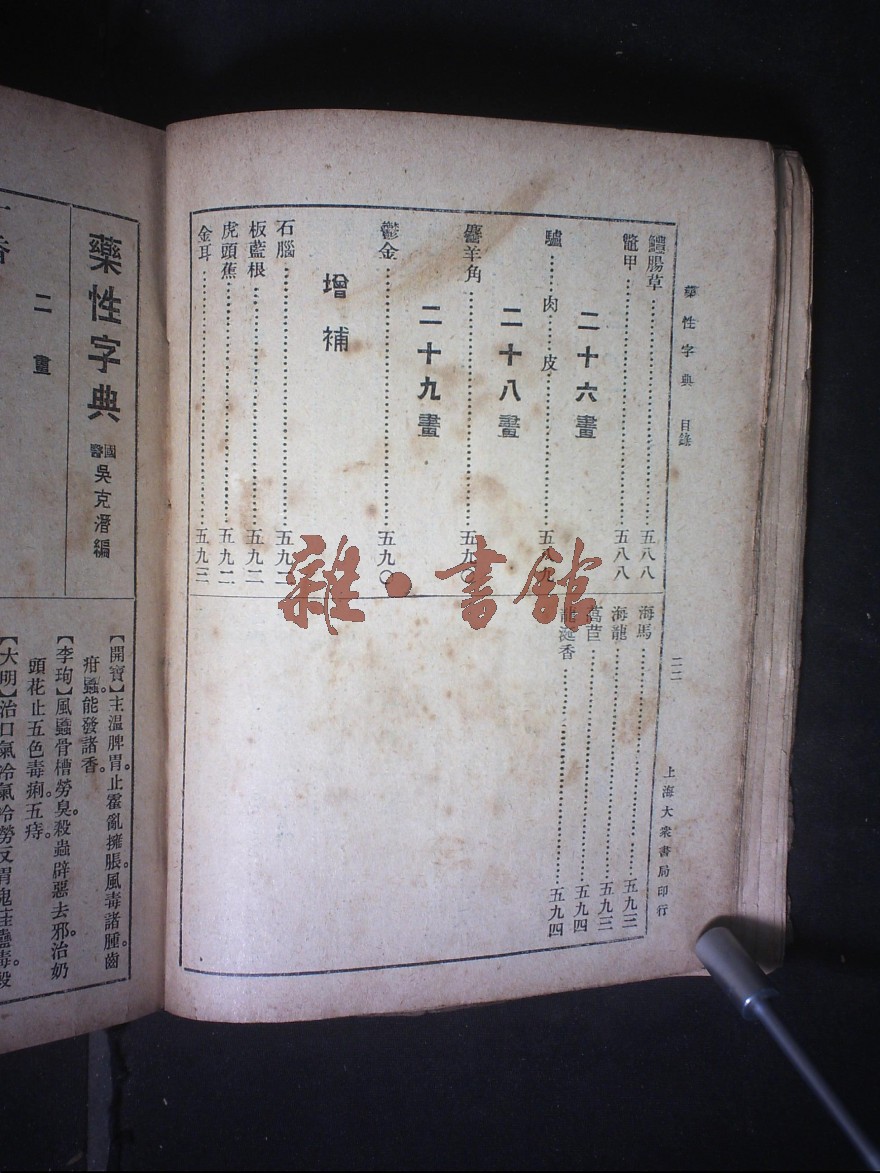 藥性字典 目錄
二二
上海大衆書局印行
鱧腸草……五八八
鼈甲……五八八
二十六畫
驢……肉……皮……五八九
二十八畫
麢羊角……五九〇
二十九畫
鬱金……五九〇
增補
石腦……五九二
板藍根……五九二
虎頭蕉……五九二
金耳……五九三
海馬……五九三
海龍……五九三
萵苣……五九四
香……五九四
雜·書館
藥性字典
國醫吳克潛編
二畫
香
【開寶】主溫脾胃。止霍亂擁脹。風毒諸腫。齒
疳䘌。能發諸香。
【李珣】風䘌骨槽勞臭。殺蟲辟惡去邪。治奶
頭花止五色毒痢。五痔。
【大明】治口氣冷氣冷勞反胃鬼疰蠱毒。殺